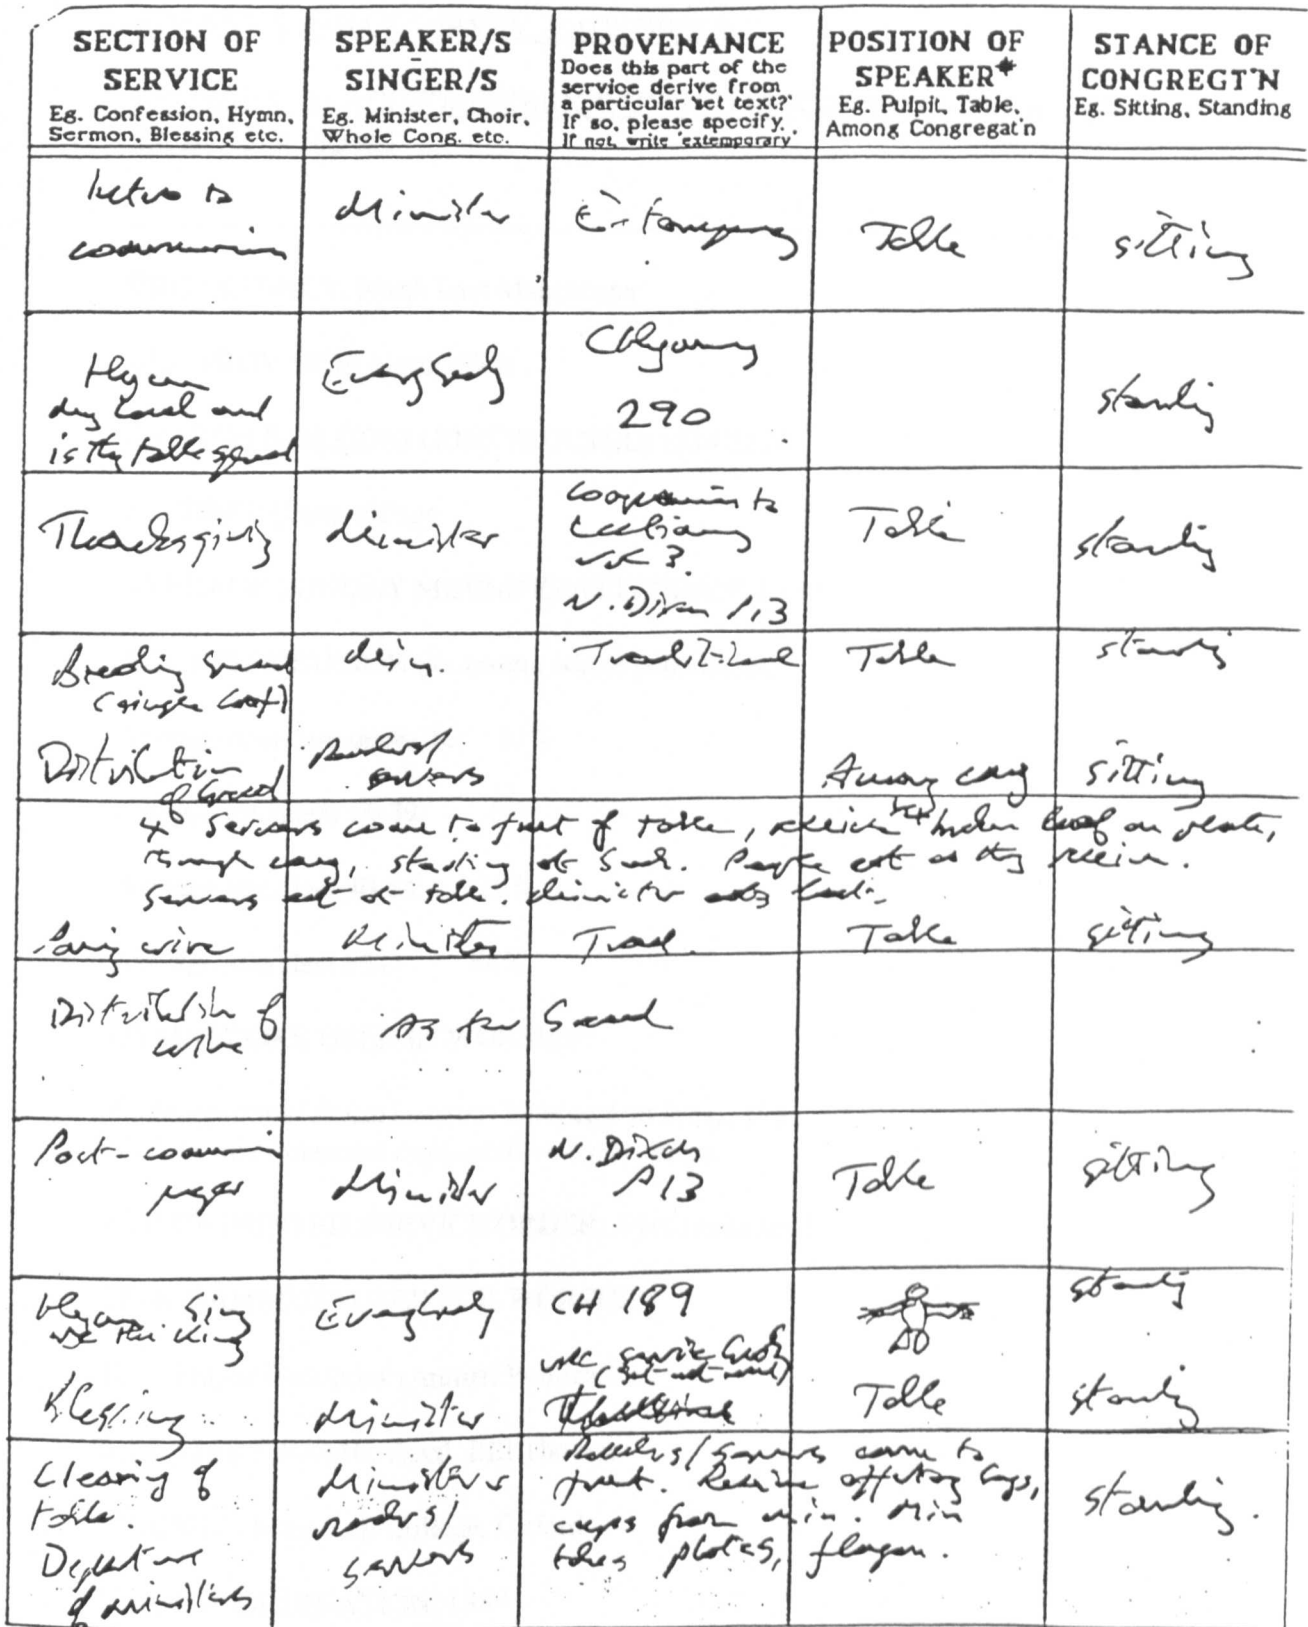 SECTION OF SERVICE
Eg. Confession, Hymn,
Sermon, Blessing etc.
SPEAKER/S
SINGER/S
Eg. Minister, Choir,
Whole Cong. etc.
PROVENANCE
Does this part of the
service derive from
a particular 'set text?'
If so, please specify.
If not, write 'extemporary'
POSITION OF
SPEAKER*
Eg. Pulpit, Table,
Among Congregat'n
STANCE OF
CONGREGT'N
Eg. Sitting, Standing
Intro to
communion
Minister
Extemporary
Table
sitting
Hymn
my Lord and
is thy table spread
Everybody
290
standing
Thanksgiving
Minister
Companion to
Lectionary
vol 3.
N. Dixon
Table
standing
Breaking bread
(single loaf)
Min.
Traditional
Table
standing
Distribution
of bread
Readers/
servers
Among cong
sitting
4 Servers come to front of table, receive broken loaf on plate,
through cong, starting at back. People eat as they receive.
Servers eat at table. Minister eats last.
Pouring wine
Minister
Trad.
Table
sitting
Distribution of
wine
As for bread
Post-communion
prayer
Minister
N. Dixon
P13
Table
sitting
Hymn Sing
we the King
Everybody
CH 189
standing
Blessing
Minister
URC service book
(but not read)
Table
standing
Clearing of
table.
Departure
of ministers
Ministers
readers/
servers
Readers/servers come to
front. Receive offertory bags,
cups from min. Min
takes plates, flagon.
standing.